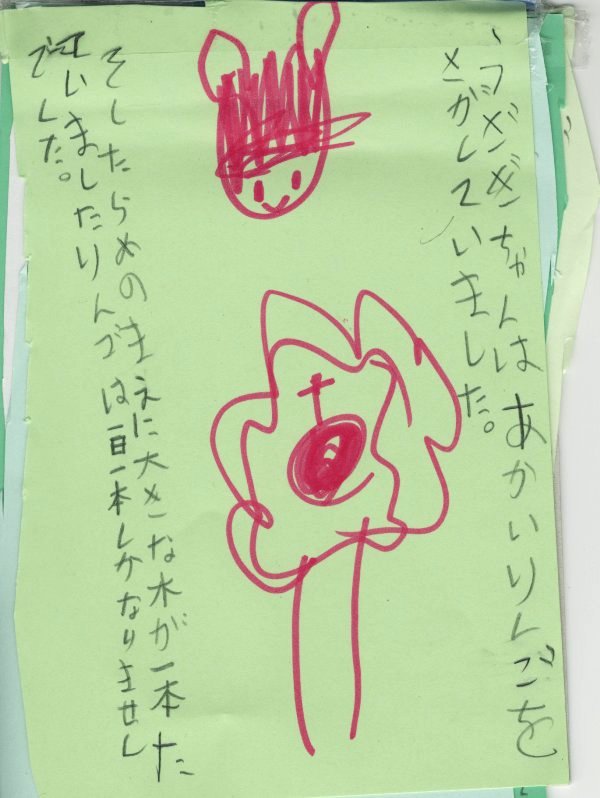 うざぎちゃんはあかいりんごを
さがしていました。
そしたらめのまえに大きな木が一本た
ていましたりんごは一日一本しかなりません
でした。